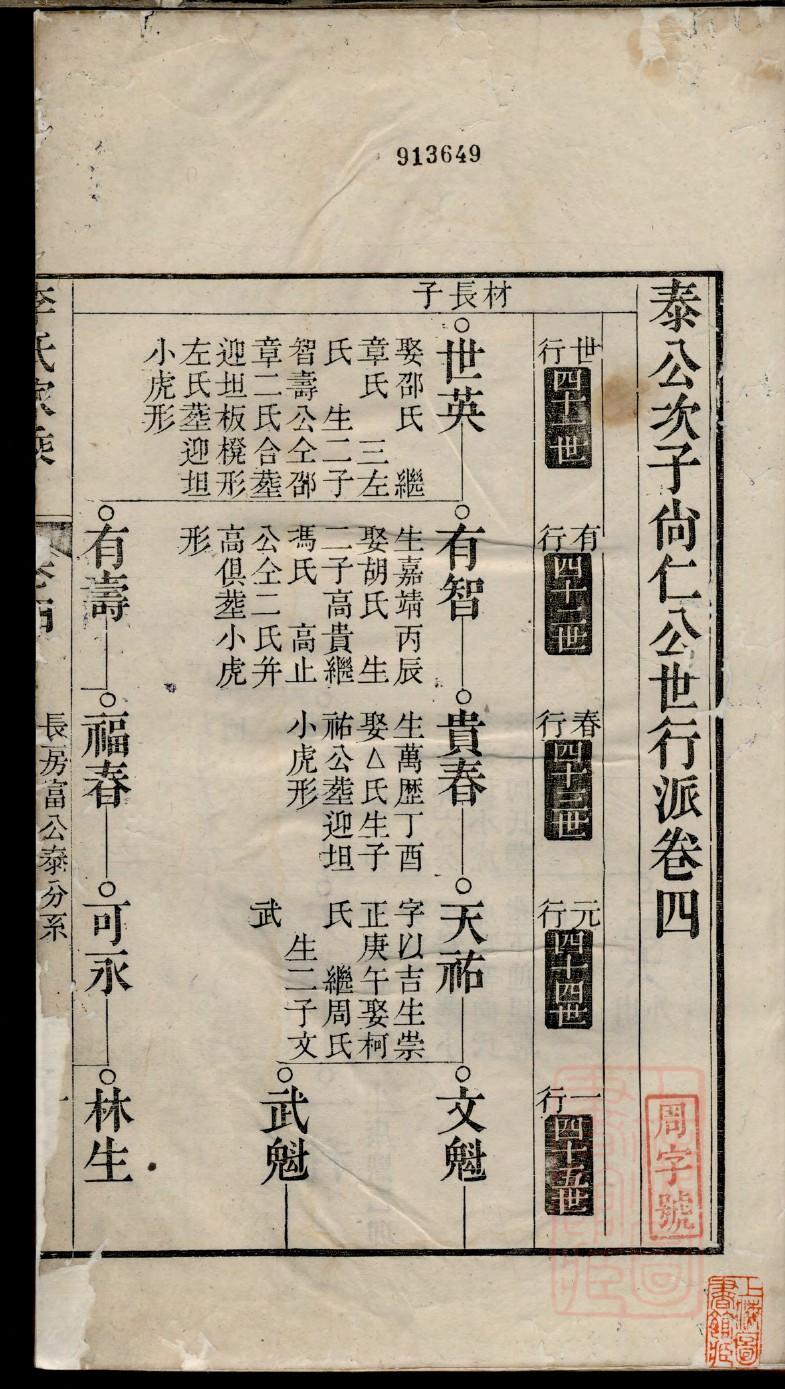 913649
泰公次子尙仁公世行派卷四
周字號
世行
四十一世
有行
四十二世
春行
四十三世
元行
四十四世
一行
四十五世
材長子
世英
娶邵氏 繼
章氏 三左
氏 生二子
智壽公仝邵
章二氏合塟
迎坦板櫈形
左氏塟迎坦
小虎形
有智
生嘉靖丙辰
娶胡氏 生
二子高貴繼
馮氏 高止
公仝二氏并
高俱塟小虎
形
貴春
生萬歷丁酉
娶△氏生子
祐公塟迎坦
小虎形
天祐
字以吉生崇
正庚午娶柯
氏 繼周氏
生二子文
武
文魁
武魁
有壽
福春
可永
林生
李氏家乘
卷四
長房富公泰分系
上海圖書館藏